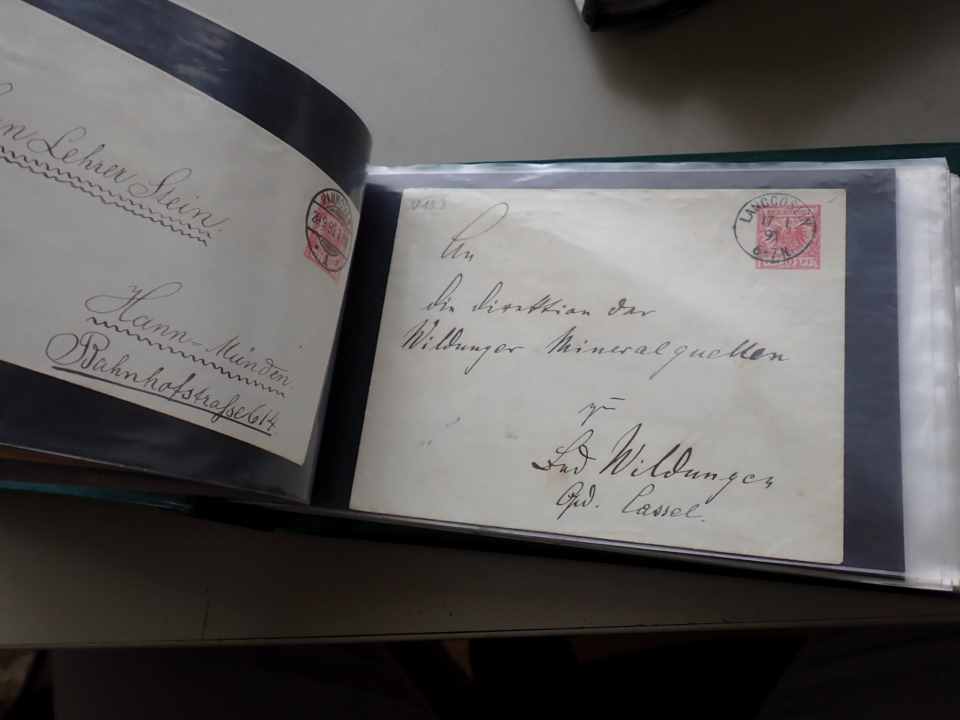 Lehrer Stein.
Hann-Münden.
Bahnhofstraße 614.
An
die Direktion der
Wildunger Mineralquellen
zu
Bad Wildungen
Cassel.
LANGGÖNS
17 1
6-7N.